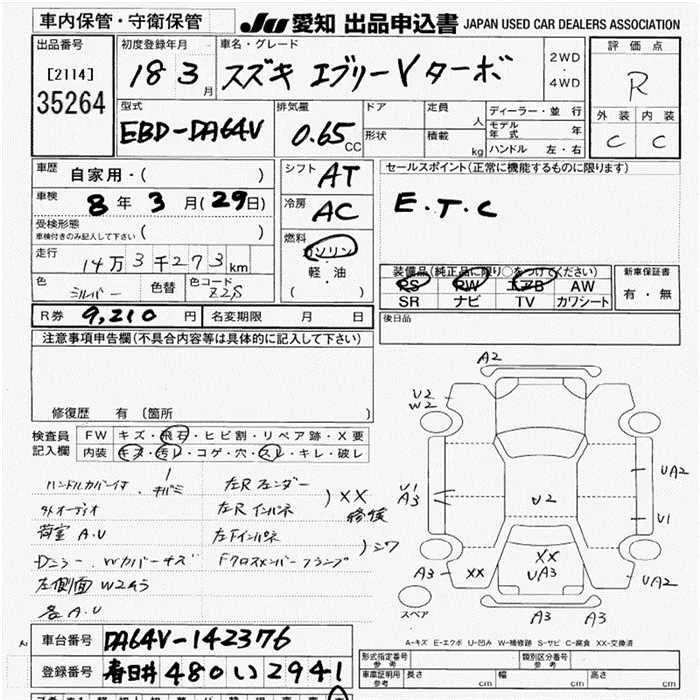 車内保管・守衛保管
JU 愛知 出品申込書 JAPAN USED CAR DEALERS ASSOCIATION
出品番号
[2114]
35264
初度登録年月
18 3月
車名・グレード
スズキ エブリーVターボ
2WD
・
4WD
評価点
R
外装 内装
C C
型式
EBD-DA64V
排気量
0.65 CC
ドア
形状
定員 人
積載 kg
ディーラー・並行
モデル年式 年
ハンドル 左・右
車歴
自家用・( )
車検
8年 3月(29日)
受検形態
車検付きのみ記入して下さい ( )
走行
14万3千273km
色 シルバー
色替
色コード Z2S
シフト AT
冷房 AC
燃料
ガソリン
・
軽・油
( )
セールスポイント(正常に機能するものに限ります)
E.T.C
装備品(純正品に限り○をつけてください)
PS PW エアB AW
SR ナビ TV カワシート
新車保証書
有・無
R券 9,210円
名変期限 月 日
後日品
注意事項申告欄(不具合内容等は具体的に記入して下さい)
修復歴 有(箇所 )
検査員
記入欄
FW キズ・飛石・ヒビ割・リペア跡・X要
内装 キズ・汚レ・コゲ・穴・スレ・キレ・破レ
ハンドルカバーイタ
外オーディオ
荷室 A.U
左側面 W2あり
各A.U
左Rフェンダー
左Rインパネ
) XX
修復
左Fインパネ
Fクロスメンバーフランプ
) シワ
A2
U2
W2
U1
A3
U2
UA2
U1
XX
UA3
A3
XX
UA2
スペア
A3
A3
A-キズ E-エクボ U-凹み W-補修跡 S-サビ C-腐食 XX-交換済
車台番号 DA64V-142376
登録番号 春日井 480 い 2941
形式指定番号
参考
類別区分番号
参考
車庫証明用
参考
長さ cm
幅 cm
高さ cm